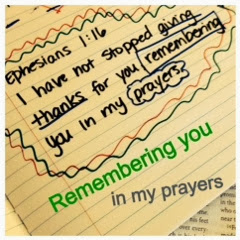 Ephesians 1:16
I have not stopped giving
thanks for you remembering
you in my prayers.
Remembering you
in my prayers